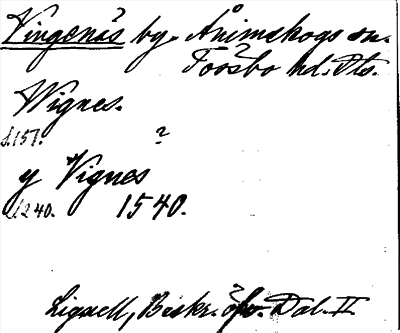 Vingenäs by. Ånimskogs sn.
Tössbo hd. Dls.
Wignes.
s.151.
?
y Vignes
s.240. 1540.
Lignell, Beskr. öfv. Dal. II